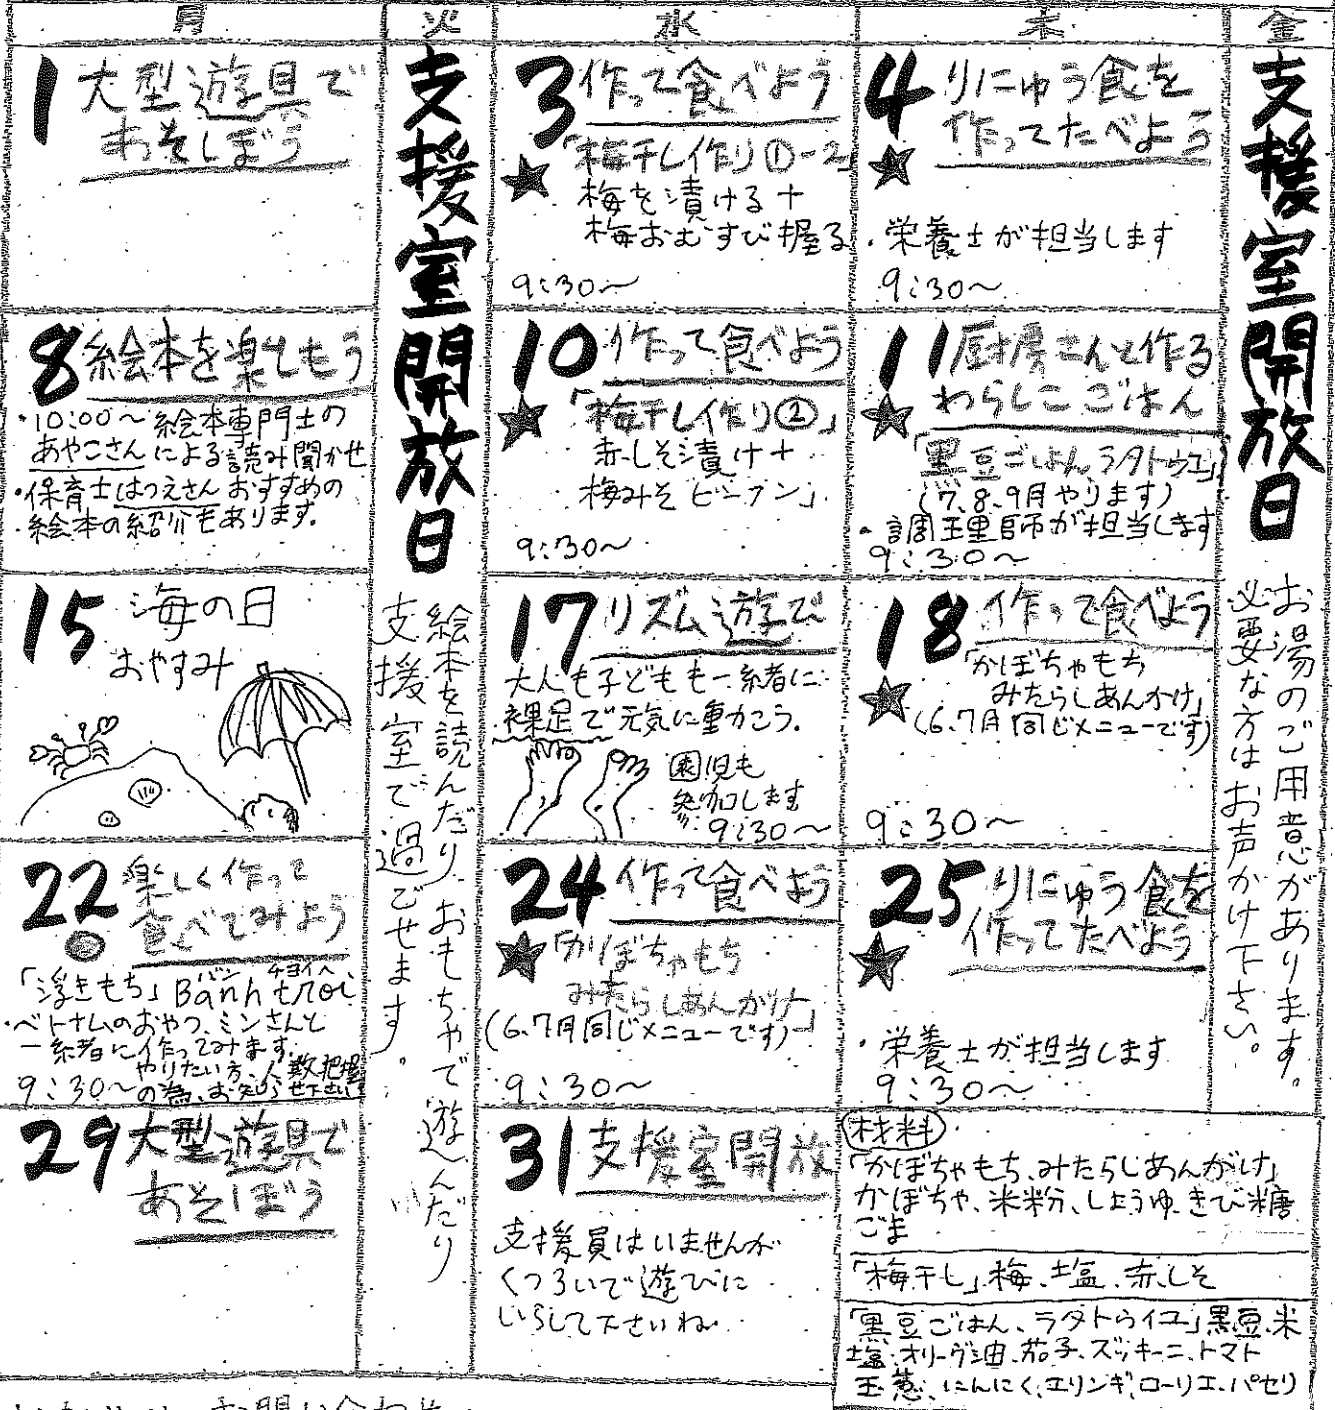 月 火 水 木 金
1 大型遊具で
あそぼう
支援室開放日
3 作って食べよう
★「梅干し作り①-2
梅を漬ける+
梅おむすび握る
9:30〜
4 りにゅう食を
★作ってたべよう
・栄養士が担当します
9:30〜
支援室開放日
8 絵本を楽しもう
・10:00〜絵本専門士の
あやこさんによる読み聞かせ
・保育士はつえさんおすすめの
絵本の紹介もあります。
10 作って食べよう
★「梅干し作り②」
赤しそ漬け+
梅みそビーフン」
9:30〜
11 厨房さんと作る
★わらしこごはん
「黒豆ごはん、ラタトゥユ」
(7、8、9月やります)
・調理師が担当します
9:30〜
15 海の日
おやすみ
絵本を読んだりおもちゃで遊んだり
支援室で過ごせます。
17 リズム遊び
大人も子どもも一緒に
裸足で元気に動こう。
園児も
参加します
9:30〜
18 作って食べよう
★「かぼちゃもち
みたらしあんかけ」
(6、7月同じメニューです)
9:30〜
お湯のご用意があります。
必要な方はお声かけ下さい。
22 楽しく作って
食べてみよう
バン チョイへ
「浮きもち」Banh troi
・ベトナムのおやつ、ミンさんと
一緒に作ってみます。
やりたい方、人数把握
9:30〜の為、お知らせ下さい
24 作って食べよう
★「かぼちゃもち
みたらしあんかけ」
(6、7月同じメニューです)
9:30〜
25 りにゅう食を
★作ってたべよう
・栄養士が担当します
9:30〜
29 大型遊具で
あそぼう
31 支援室開放
支援員はいませんが
くつろいで遊びに
いらして下さいね
材料
「かぼちゃもち、みたらしあんかけ」
かぼちゃ、米粉、しょうゆ、きび糖
ごま
「梅干し」梅、塩、赤しそ
「黒豆ごはん、ラタトゥイユ」黒豆、米
塩、オリーヴ油、茄子、ズッキーニ、トマト
玉葱、にんにく、エリンギ、ローリエ、パセリ